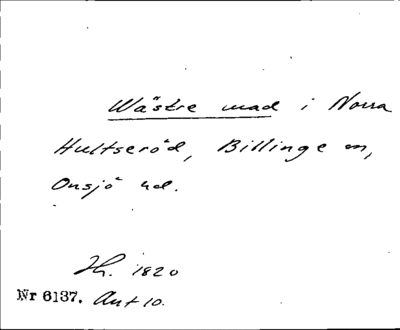 Wästre mad i Norra
Hultseröd, Billinge sn,
Onsjö hd.
Th. 1820
Nr 6137. Art 10.